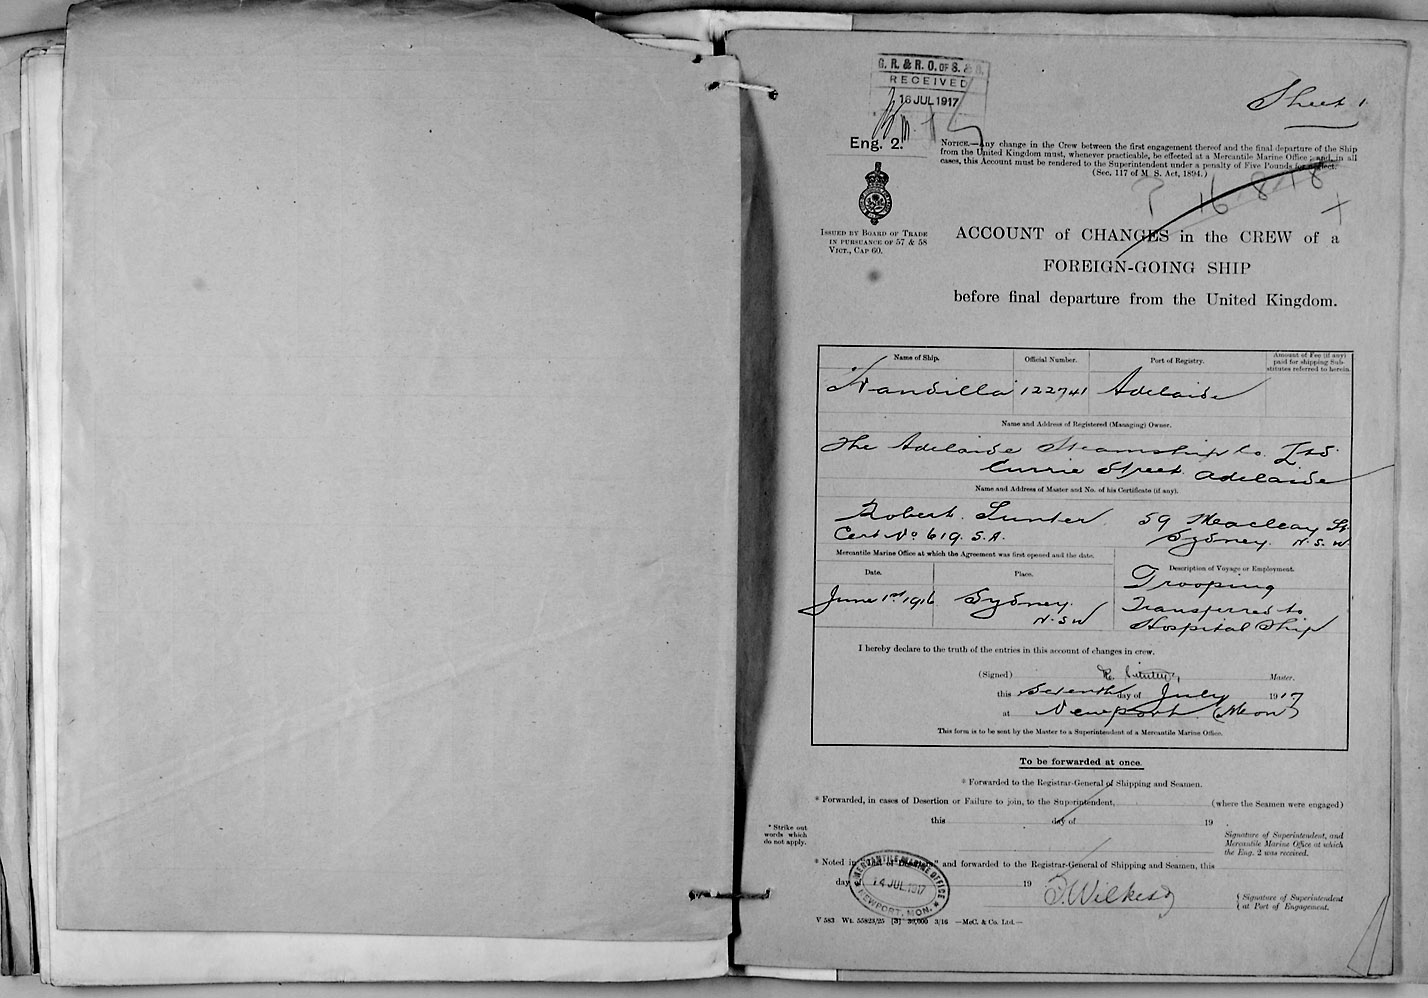 G. R. & R. O. OF S. & S.
RECEIVED
16 JUL 1917
Sheet 1
Eng. 2.
NOTICE.—Any change in the Crew between the first engagement thereof and the final departure of the Ship
from the United Kingdom must, whenever practicable, be effected at a Mercantile Marine Office; and, in all
cases, this Account must be rendered to the Superintendent under a penalty of Five Pounds for neglect.
(Sec. 117 of M. S. Act, 1894.)
? 16 8 18 +
ISSUED BY BOARD OF TRADE
IN PURSUANCE OF 57 & 58
VICT., CAP 60.
ACCOUNT of CHANGES in the CREW of a
FOREIGN-GOING SHIP
before final departure from the United Kingdom.
Name of Ship.
Official Number.
Port of Registry.
Amount of Fee (if any)
paid for shipping Sub-
stitutes referred to herein.
Wandilla 122741 Adelaide
Name and Address of Registered (Managing) Owner.
The Adelaide Steamship Co. Ltd.
Currie Street. Adelaide
Name and Address of Master and No. of his Certificate (if any).
Robert Lunter 59 Macleay St.
Cert No 619. S.A. Sydney. N.S.W.
Mercantile Marine Office at which the Agreement was first opened and the date.
Description of Voyage or Employment.
Date. Place.
Trooping
June 1st 1916 Sydney. Transferred to
N.S.W Hospital Ship
I hereby declare to the truth of the entries in this account of changes in crew.
(Signed) Master.
this Seventh day of July 1917
at Newport (Mon)
This form is to be sent by the Master to a Superintendent of a Mercantile Marine Office.
To be forwarded at once.
* Forwarded to the Registrar-General of Shipping and Seamen.
* Forwarded, in cases of Desertion or Failure to join, to the Superintendent, (where the Seamen were engaged)
this day of 19
Signature of Superintendent, and
Mercantile Marine Office at which
the Eng. 2 was received.
* Strike out
words which
do not apply.
* Noted in and forwarded to the Registrar-General of Shipping and Seamen, this
day 19
MERCANTILE MARINE OFFICE
14 JUL 1917
NEWPORT, MON.
Wilkes
Signature of Superintendent
at Port of Engagement.
V 583 Wt. 55823/25 [3] 30,000 3/16 —McC. & Co. Ltd.—